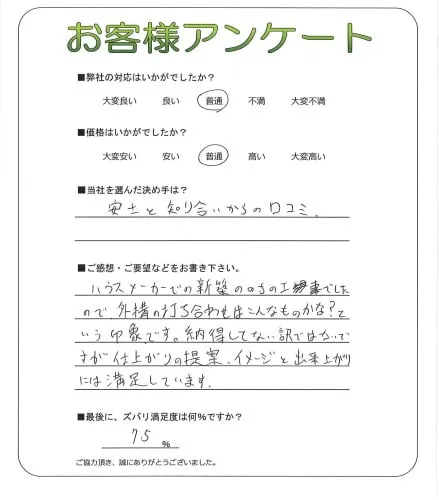 お客様アンケート
■弊社の対応はいかがでしたか？
大変良い 良い 普通 不満 大変不満
■価格はいかがでしたか？
大変安い 安い 普通 高い 大変高い
■当社を選んだ決め手は？
安さと知り合いからの口コミ.
■ご感想・ご要望などをお書き下さい。
ハウスメーカーでの新築ののちの工事でした
ので、外構の打ち合わせはこんなものかな？と
いう印象です。納得してない訳ではないで
すが仕上がりの提案、イメージと出来上がり
には満足しています.
■最後に、ズバリ満足度は何％ですか？
75 %
ご協力頂き、誠にありがとうございました。